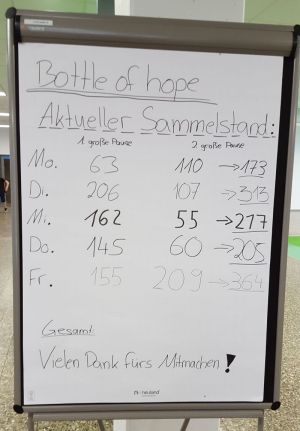 Bottle of hope
Aktueller Sammelstand:
1. große Pause 2. große Pause
Mo. 63 110 →173
Di. 206 107 →313
Mi. 162 55 →217
Do. 145 60 →205
Fr. 155 209 →364
Gesamt:
Vielen Dank fürs Mitmachen!
neuland